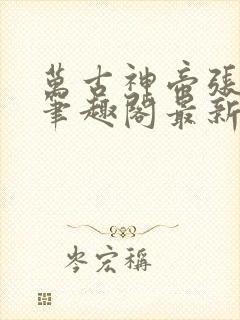 萬古神帝張
筆趣閣最新
岑宏稱